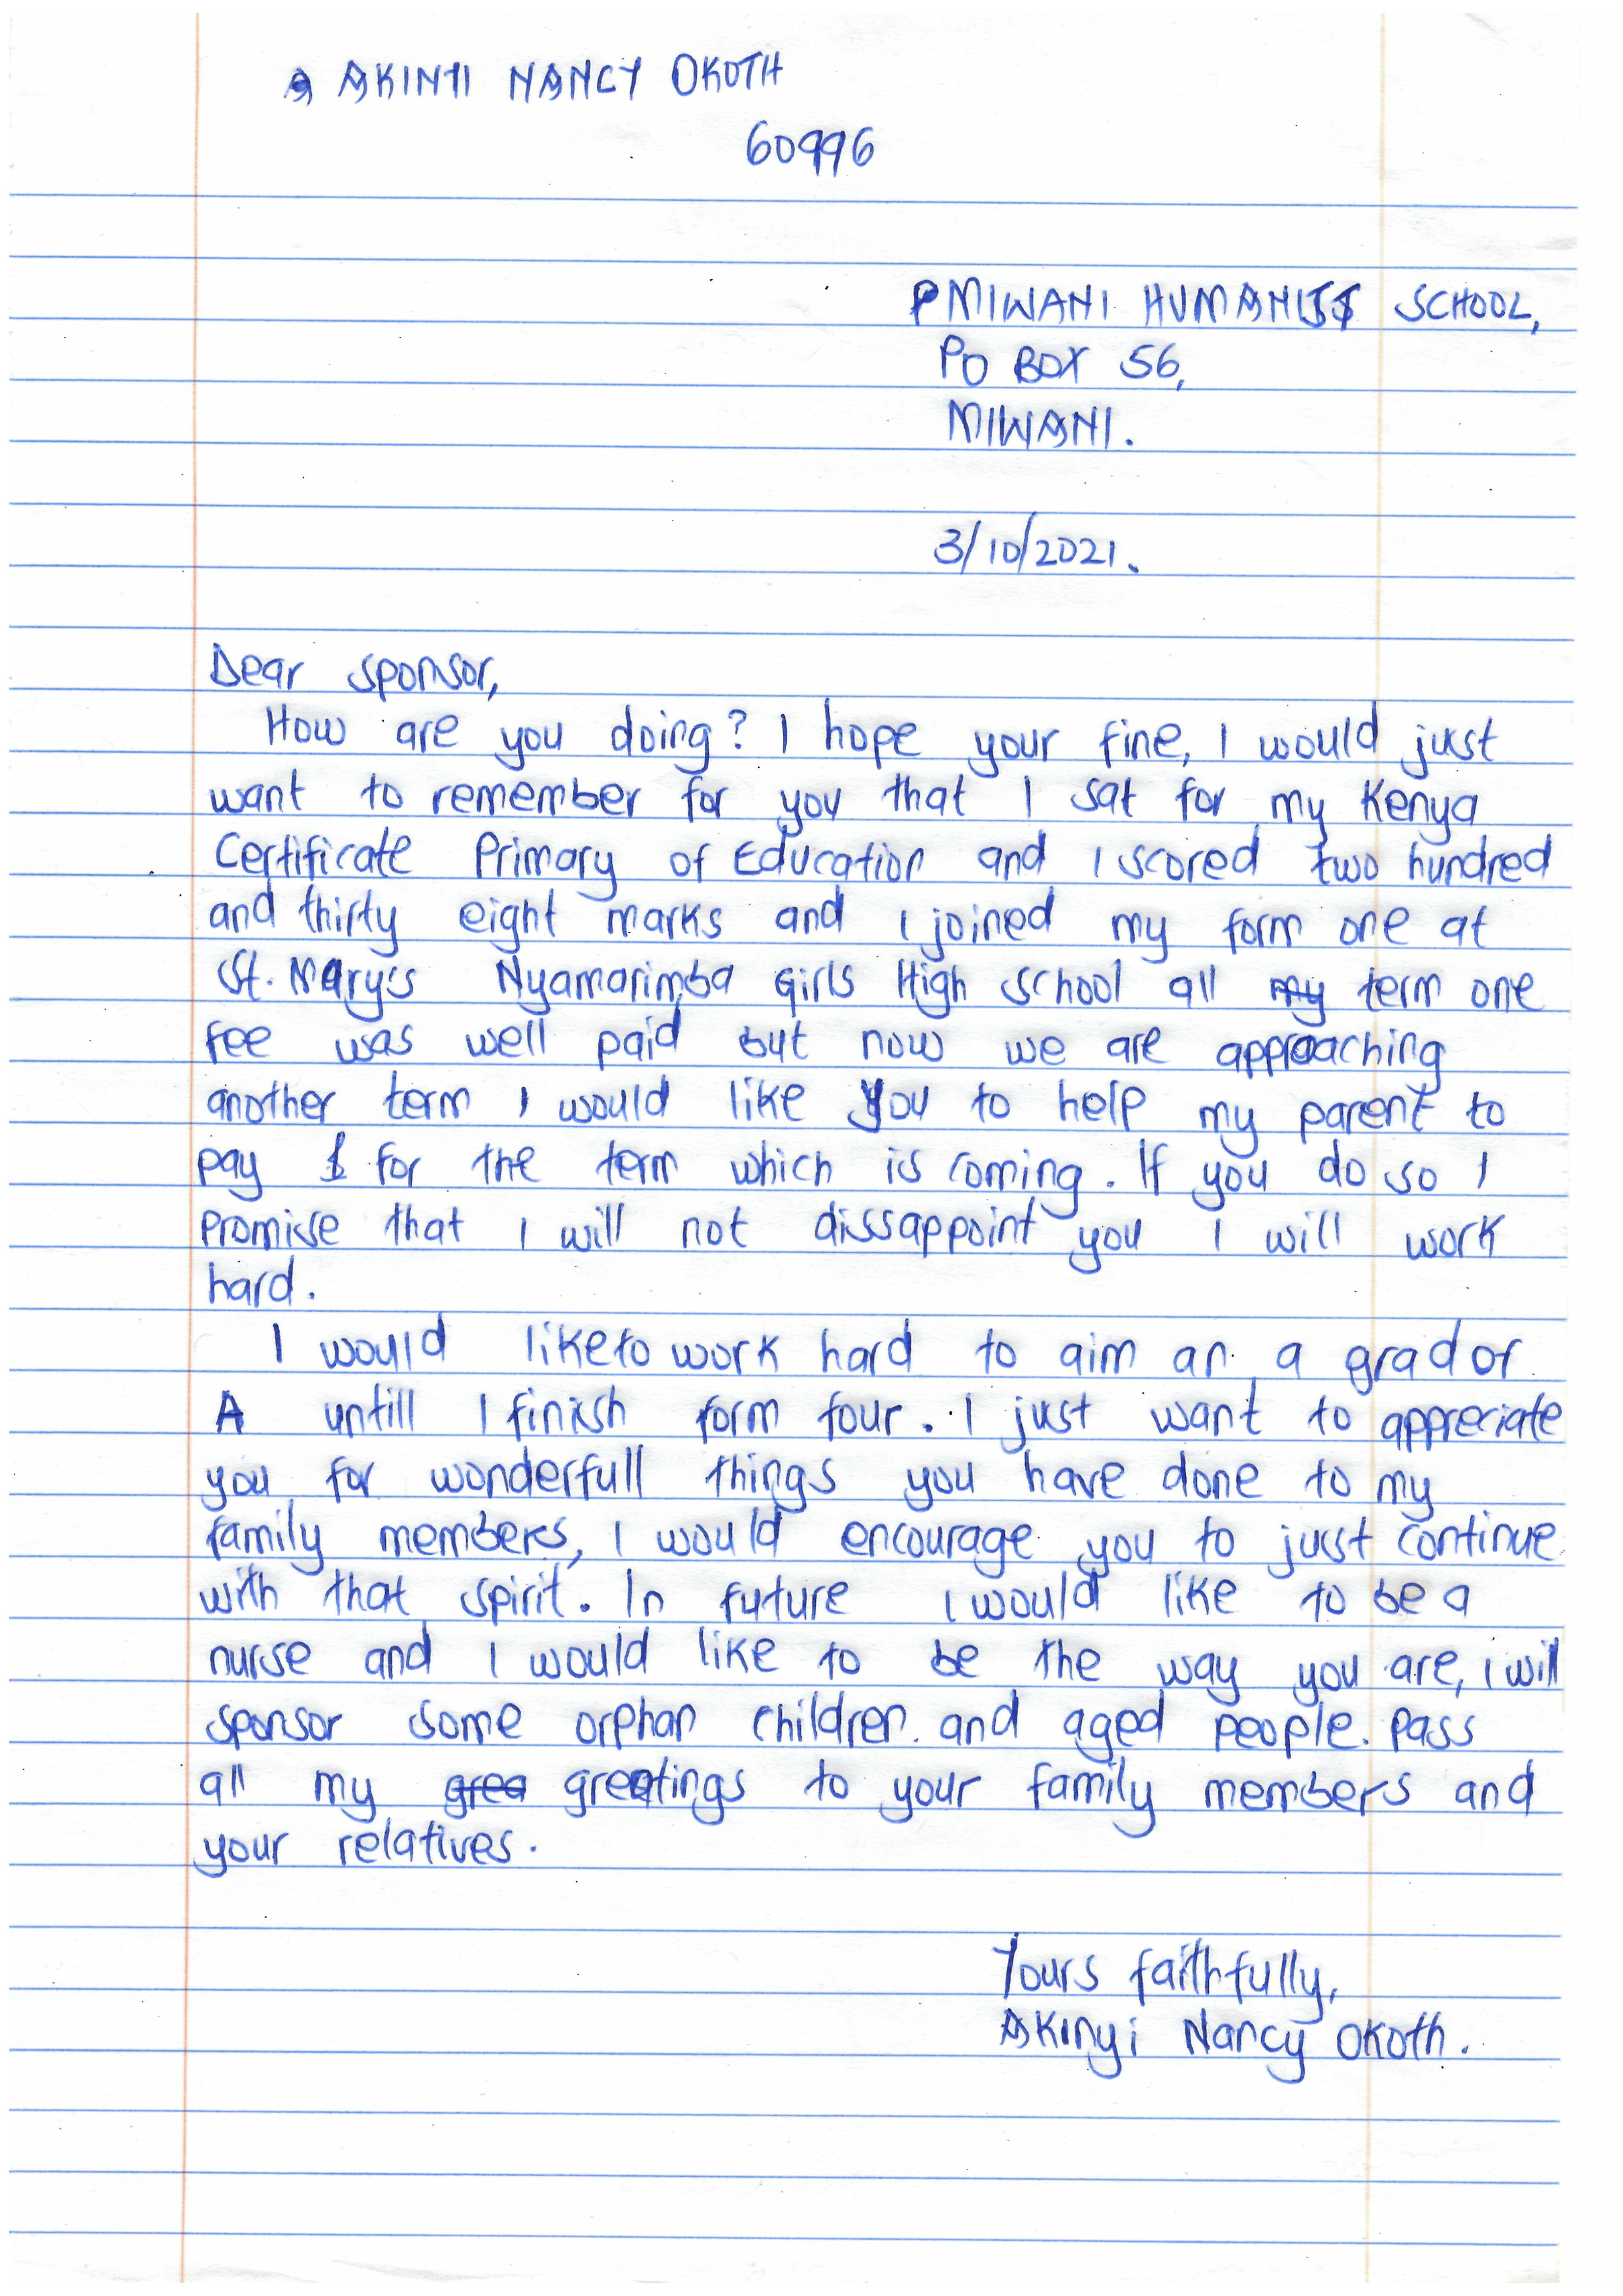 AKINYI NANCY OKOTH
60996
MIWANI HUMANIST SCHOOL,
PO BOX 56,
MIWANI.
3/10/2021.
Dear sponsor,
How are you doing? I hope your fine, I would just
want to remember for you that I sat for my Kenya
Certificate Primary of Education and I scored two hundred
and thirty eight marks and I joined my form one at
St. Mary's Nyamarimba Girls High School all my term one
fee was well paid but now we are approaching
another term I would like you to help my parent to
pay for the term which is coming. If you do so I
promise that I will not dissappoint you I will work
hard.
I would like to work hard to aim an a grad of
A untill I finish form four. I just want to appreciate
you for wonderfull things you have done to my
family members, I would encourage you to just continue
with that spirit. In future I would like to be a
nurse and I would like to be the way you are, i will
sponsor some orphan children and aged people. Pass
all my grea greetings to your family members and
your relatives.
Yours faithfully,
Akinyi Nancy Okoth.